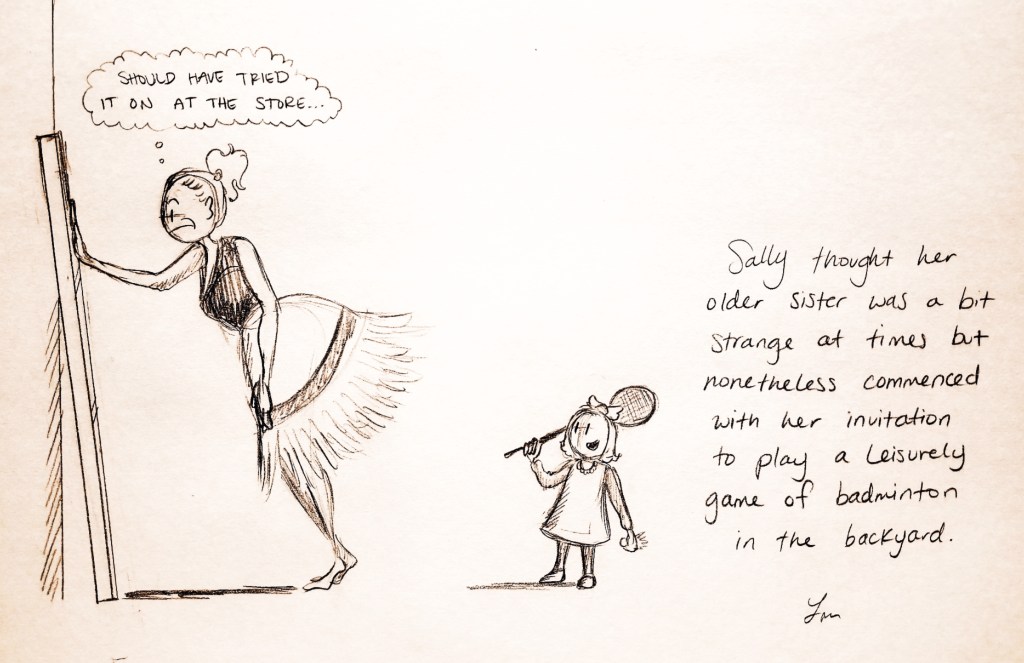 SHOULD HAVE TRIED
IT ON AT THE STORE...
Sally thought her
older sister was a bit
strange at times but
nonetheless commenced
with her invitation
to play a Leisurely
game of badminton
in the backyard.